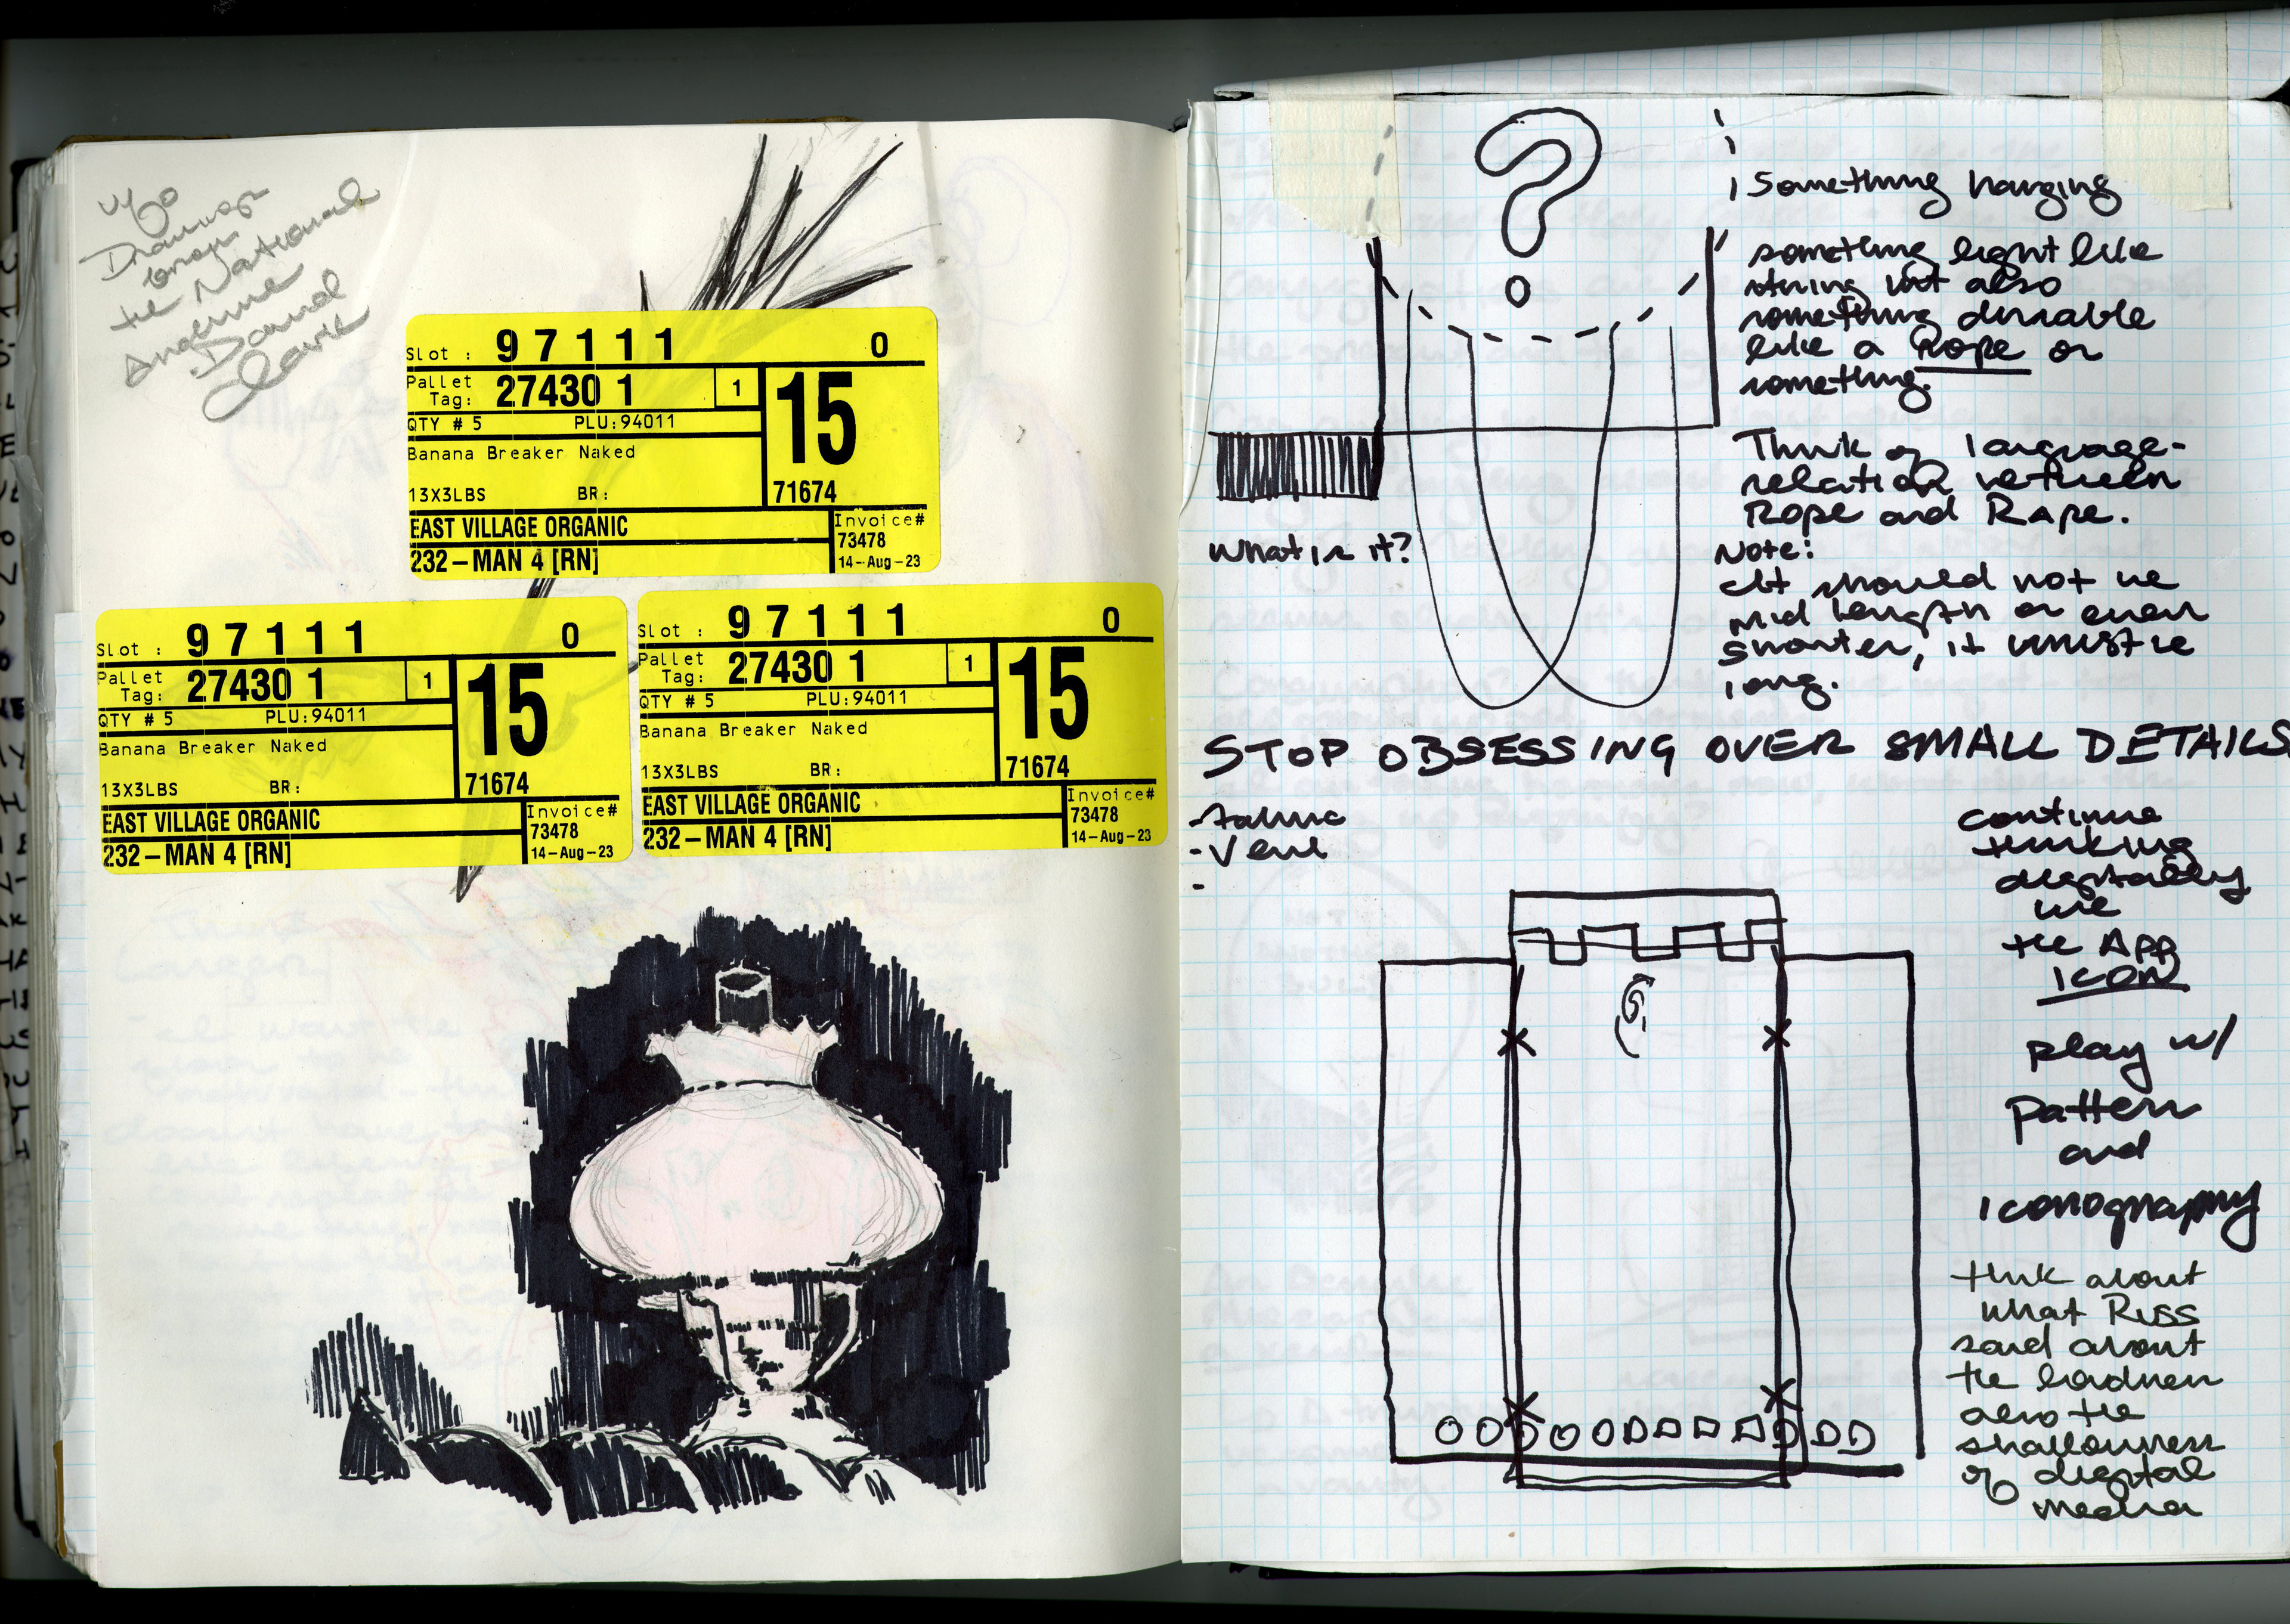 Drawings
from
the National
Academie
David
Slot : 97111 0
Pallet Tag: 27430 1 1 15
QTY # 5 PLU:94011
Banana Breaker Naked
13X3LBS BR: 71674
EAST VILLAGE ORGANIC Invoice#
73478
232-MAN 4 [RN] 14-Aug-23
Slot : 97111 0
Pallet Tag: 27430 1 1 15
QTY # 5 PLU:94011
Banana Breaker Naked
13X3LBS BR: 71674
EAST VILLAGE ORGANIC Invoice#
73478
232-MAN 4 [RN] 14-Aug-23
Slot : 97111 0
Pallet Tag: 27430 1 1 15
QTY # 5 PLU:94011
Banana Breaker Naked
13X3LBS BR: 71674
EAST VILLAGE ORGANIC Invoice#
73478
232-MAN 4 [RN] 14-Aug-23
?
Something hanging
something light like
string but also
something durable
like a Rope or
something.
Think of language-
relation between
Rope and Rape.
What is it?
Note:
It should not be
mid length or even
shorter, it must be
long.
STOP OBSESSING OVER SMALL DETAILS
-
-
-
continue
thinking
digitally
like
the App
ICON
play w/
pattern
and
iconography
think about
what Russ
said about
the
also the
shallowness
of digital
media